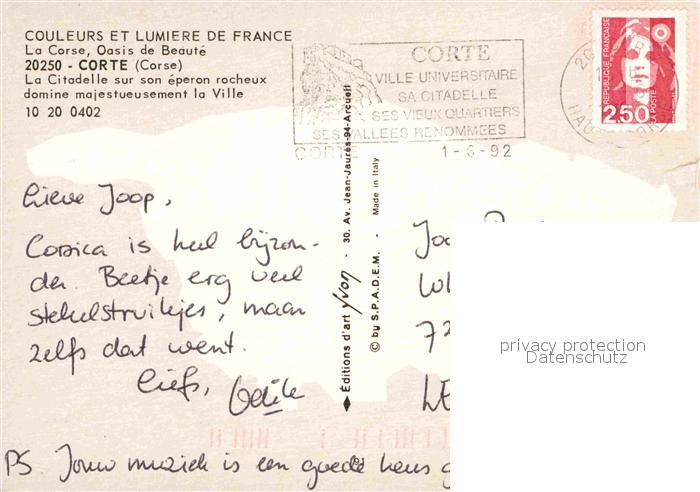 COULEURS ET LUMIERE DE FRANCE
La Corse, Oasis de Beauté
20250 - CORTE (Corse)
La Citadelle sur son éperon rocheux
domine majestueusement la Ville
10 20 0402
CORTE
VILLE UNIVERSITAIRE
SA CITADELLE
SES VIEUX QUARTIERS
SES VALLEES RENOMMEES
CORTE 1-6-92
REPUBLIQUE FRANÇAISE
2,50
LA POSTE
Lieve Joop,
Corsica is heel bijzon-
der. Beetje erg veel
stekelstruikjes, maar
zelfs dat went.
Liefs,
PS. Jouw muziek is een goede keus
Éditions d'art Yvon - 30, Av. Jean-Jaurès-94-Arcueil
© by S.P.A.D.E.M. - Made in Italy
privacy protection
Datenschutz